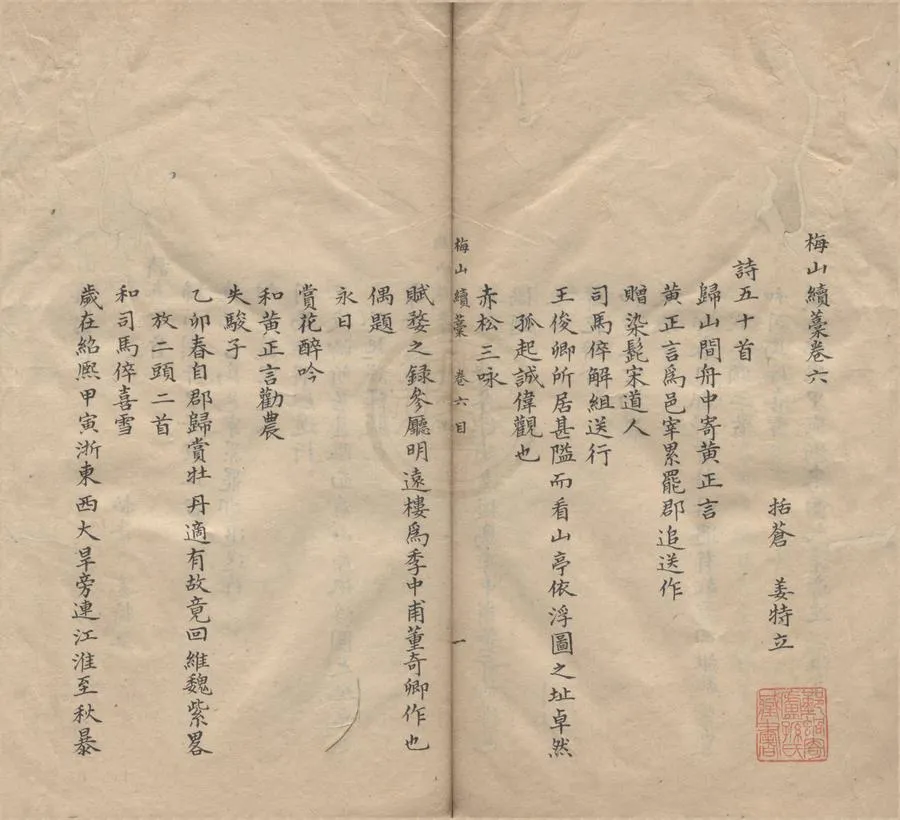 梅山續藁卷六
括蒼 姜特立
詩五十首
歸山間舟中寄黄正言
黄正言爲邑宰累罷郡追送作
贈染髭宋道人
司馬倅解組送行
王俊卿所居甚隘而看山亭依浮圖之址卓然
孤起誠偉觀也
赤松三咏
梅山續藁 卷六目 一
賦婺之録參廳明遠樓爲季中甫董奇卿作也
偶題
永日
賞花醉吟
和黄正言勸農
失駿子
乙卯春自郡歸賞牡丹適有故竟回維魏紫畧
放二頭二首
和司馬倅喜雪
歲在紹熙甲寅浙東西大旱旁連江淮至秋暴